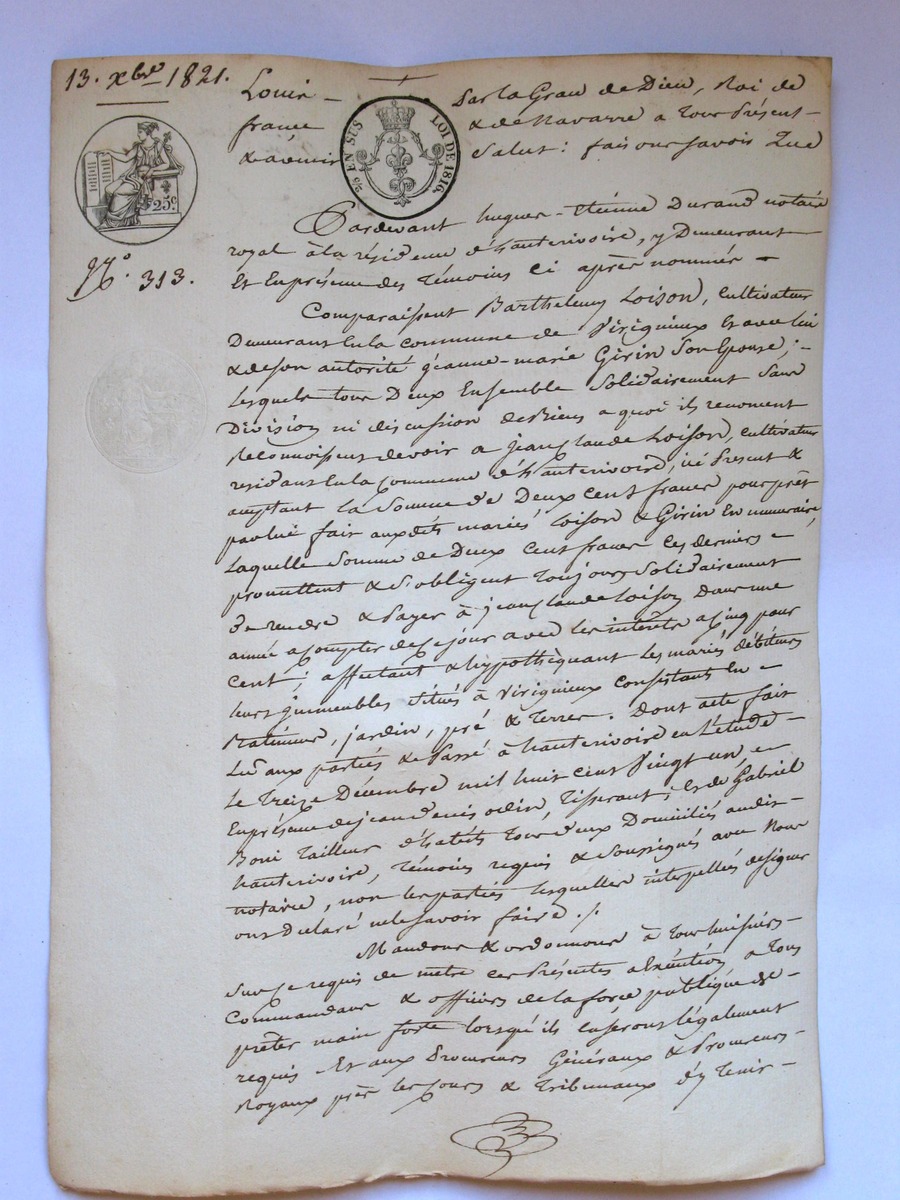 13. xbre 1821.
Louis – Par la Grace de Dieu, Roi de
france & de Navarre a tous Présent –
& avenir Salut : faisons savoir Que
EN SUS LOI DE 1816.
25c.
No. 313.
Pardevant hugues – étienne Durand notaire
royal à la résidence d'hauterivoire, y Demeurant
Et En présence des témoins ci après nommés –
Comparaissent Barthelemy Loison, cultivateur
Demeurant En la commune de Viriguieux Et avec lui
& de son autorité jeanne-marie Girin Son Epouse ; –
lesquels tous Deux Ensemble Solidairement Sans
Division ni discussion de Biens a quoi ils renoncent
reconnoissent devoir a jean claude Loison, cultivateur
residant En la Commune d'hauterivoire, ici Présent &
acceptant la Somme de Deux cent francs pour prêt
par lui fait aux dits mariés Loison & Girin En numeraire,
Laquelle Somme de Deux Cent francs ces derniers –
promettent & S'obligent toujours Solidairement
De rendre & Payer à jean claude Loison dans une
année a compter de ce jour avec les intérêts a cinq pour
cent ; affectant & hypothéquant les mariés débiteurs
leurs immeubles Situés à Viriguieux Consistant En –
Batiments, jardin, pré & terres. Dont acte fait
Lu aux parties & Passé à hauterivoire en l'étude –
Le treize Décembre mil huit cent vingt un, –
En présence de jean denis odin, tisserant ; & de Gabriel
Boni tailleur d'habits tous deux Domiciliés audit –
hauterivoire, témoins requis & Soussignés avec Nous
notaire, non les parties lesquelles interpellées de signer
ont Declaré ne le savoir faire ./.
Mandons & ordonnons à tous huissiers –
Sur ce requis de metre ces Présentes a Exécution, a tous
Commandans & officiers de la force publique de –
prêter main forte lorsqu'ils En seront légalement
requis Et aux Procureurs Généraux & Procureurs –
Royaux près les cours & Tribunaux d'y tenir –